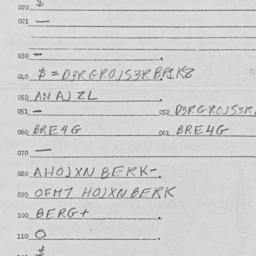 020 $
021 —
030 —
040 $ = D9RGROJS3RBRIK8
050 ANAJZL
051 — 052 D3RGROJS3R
060 BRE4G 061 BRE4G
070 —
080 AHOJXNBERK-
090 OFM7 HOJXNBERK
100 BERG+
110 O